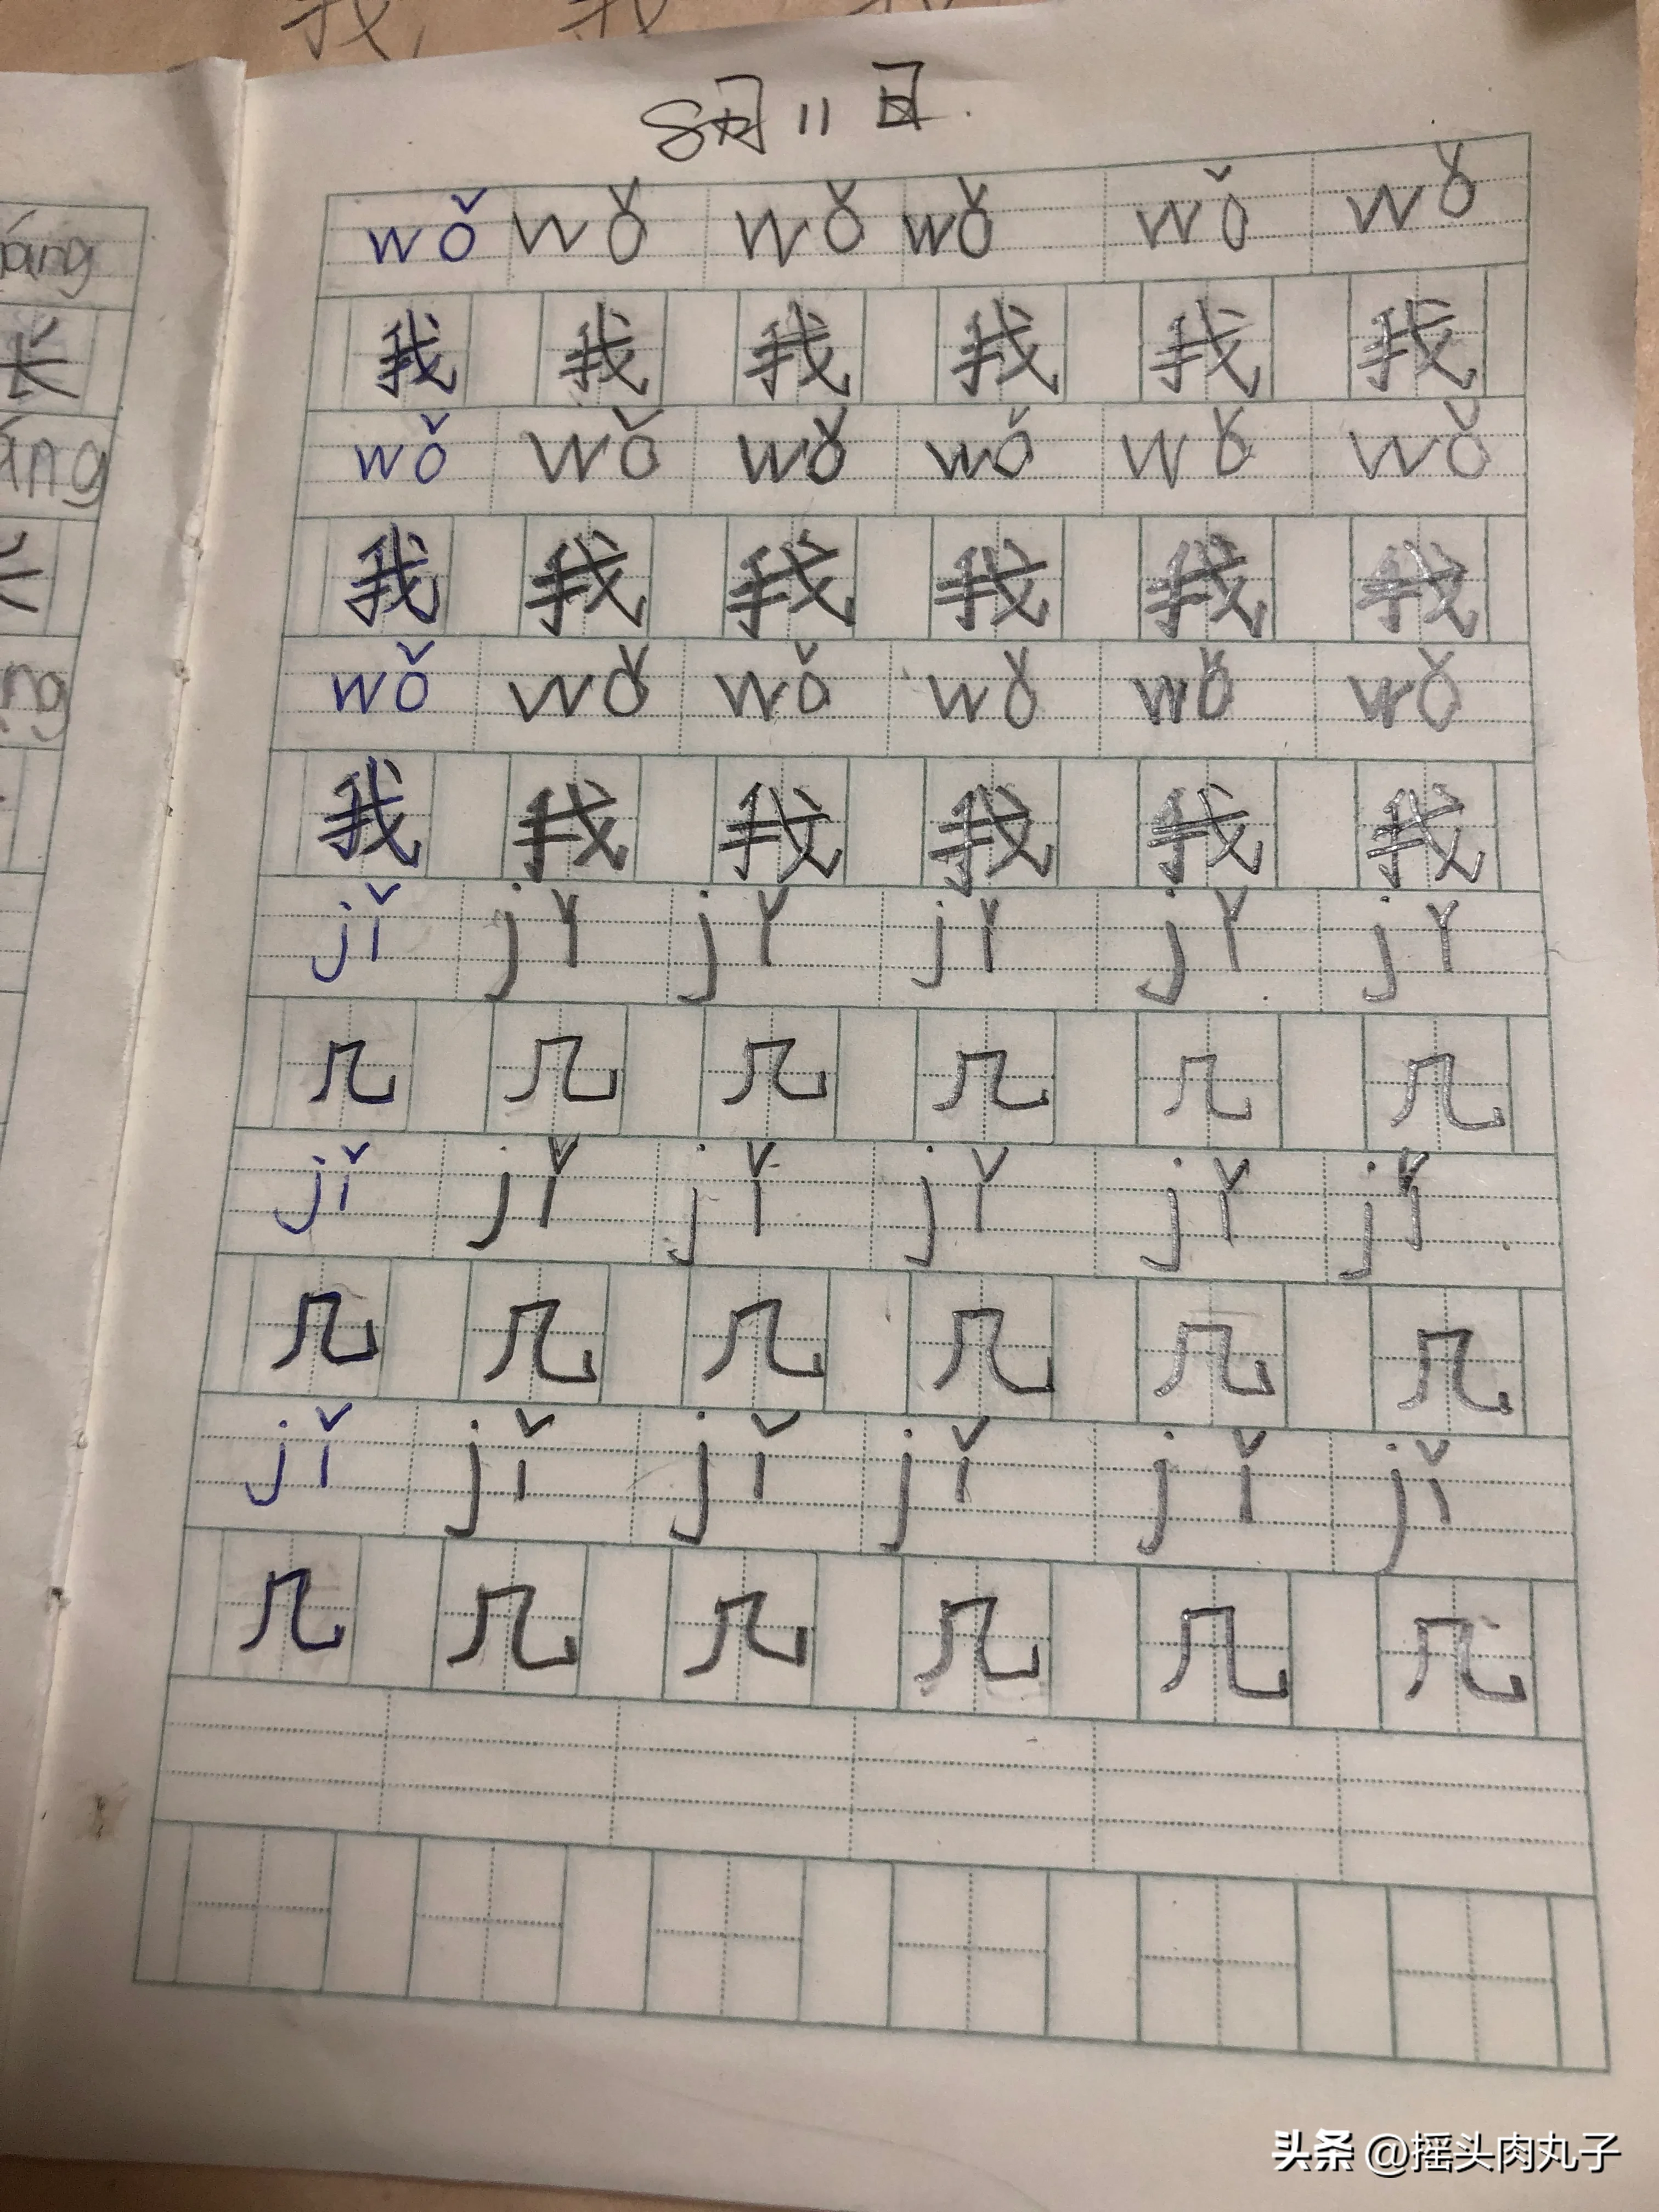 8月11日.
wǒ wǒ wǒ wǒ wǒ wǒ
我 我 我 我 我 我
wǒ wǒ wǒ wǒ wǒ wǒ
我 我 我 我 我 我
wǒ wǒ wǒ wǒ wǒ wǒ
我 我 我 我 我 我
jǐ jǐ jǐ jǐ jǐ jǐ
几 几 几 几 几 几
jǐ jǐ jǐ jǐ jǐ jǐ
几 几 几 几 几 几
jǐ jǐ jǐ jǐ jǐ jǐ
几 几 几 几 几 几
áng
长
áng
长
ng
我 我 我
头条 @摇头肉丸子